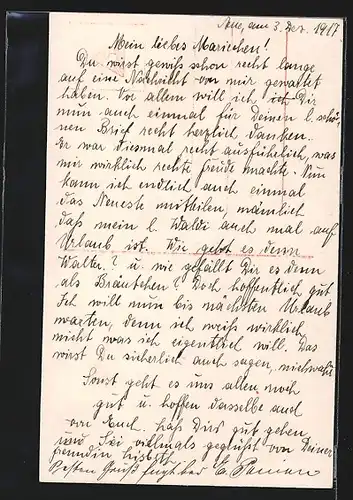 Aue, am 3. Dez. 1917
Mein liebes Mariechen!
Du wirst gewiß schon recht lange
auf eine Nachricht von mir gewartet
haben. Vor allem will ich Dir
nun auch einmal für Deinen l. schö-
nen Brief recht herzlich danken.
Er war diesmal recht ausführlich, was
mir wirklich rechte Freude machte. Nun
kann ich endlich auch einmal
das Neueste mitteilen, nämlich
daß mein l. Waldi auch mal auf
Urlaub ist. Wie geht es denn
Walter? u. wie gefällt Dir es denn
als Bräutchen? Doch hoffentlich gut
Ich will nun bis nächsten Urlaub
warten, denn ich weiß wirklich
nicht was ich eigentlich will. Das
wirst Du sicherlich auch sagen, nichwahr
Sonst geht es uns allen noch
gut u. hoffen dasselbe auch
von Euch. Laß Dirs gut gehen
und Sei vielmals gegrüßt von Deiner
Freundin
Besten Gruß